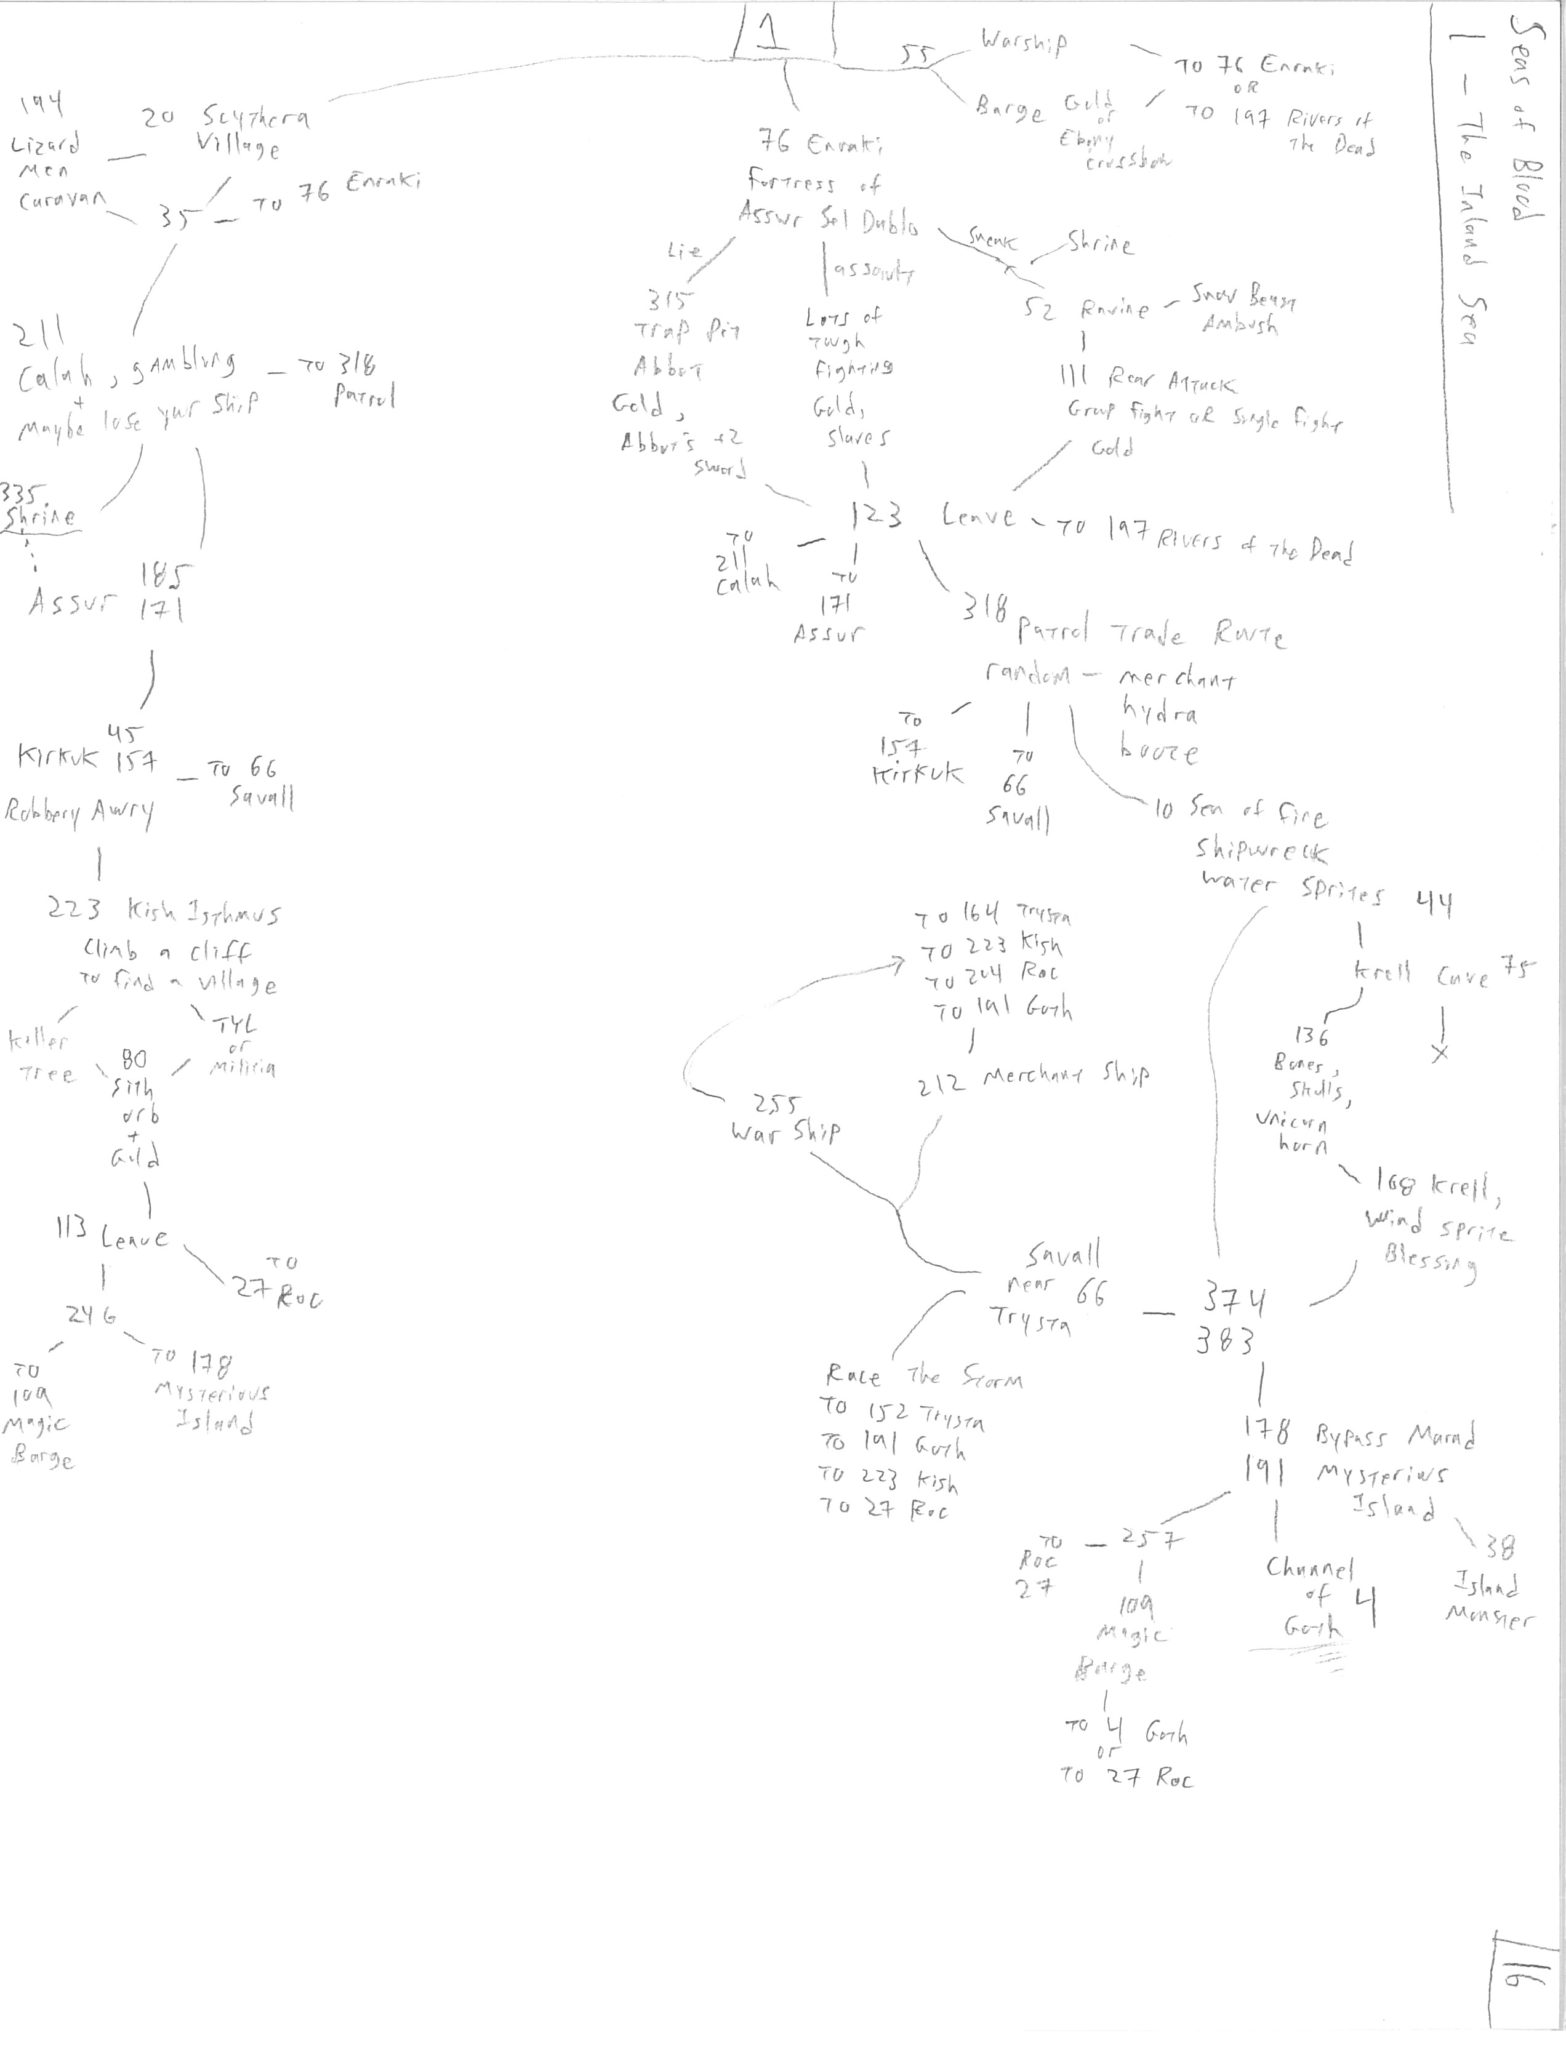 Seas of Blood
1 - The Inland Sea
16
1
55
Warship
TO 76 Enraki
OR
TO 197 Rivers of
The Dead
Barge Gold
or
Ebony
crossbow
194
Lizard
Men
Caravan
20 Scythera
Village
35 - TO 76 Enraki
211
Calah, gambling
+
Maybe lose your ship
- TO 318
Patrol
335
Shrine
185
Assur 171
45
Kirkuk 157 - TO 66
Savall
Robbery Awry
223 Kish Isthmus
Climb a cliff
To find a village
Killer
Tree
TYL
or
Militia
80
Sith
orb
+
Gold
113 Leave
TO
27 Roc
246
TO
109
Magic
Barge
TO 178
Mysterious
Island
76 Enraki
Fortress of
Assur Sel Dablo
Lie
315
Trap Pit
Abbot
Gold,
Abbot's +2
Sword
assault
Lots of
Tough
Fighting
Gold,
Slaves
Sneak
Shrine
52 Ravine - Snow Beast
Ambush
111 Rear Attack
Group fight or Single fight
Gold
123 Leave - TO 197 Rivers of The Dead
TO
211
Calah
TO
171
Assur
318
Patrol Trade Route
random - merchant
hydra
booze
TO
157
Kirkuk
TO
66
Savall
10 Sea of Fire
Shipwreck
Water Sprites 44
Krell Cave 75
X
136
Bones,
Skulls,
Unicorn
horn
168 Krell,
Wind Sprite
Blessing
TO 164 Trysta
TO 223 Kish
TO 204 Roc
TO 191 Goth
212 Merchant Ship
255
War Ship
Savall
near 66
Trysta
- 374
383
Race The Storm
TO 152 Trysta
TO 191 Goth
TO 223 Kish
TO 27 Roc
178 Bypass Marad
191 Mysterious
Island
38
Island
Monster
Channel
of 4
Goth
TO - 257
Roc
27
109
Magic
Barge
TO 4 Goth
or
TO 27 Roc